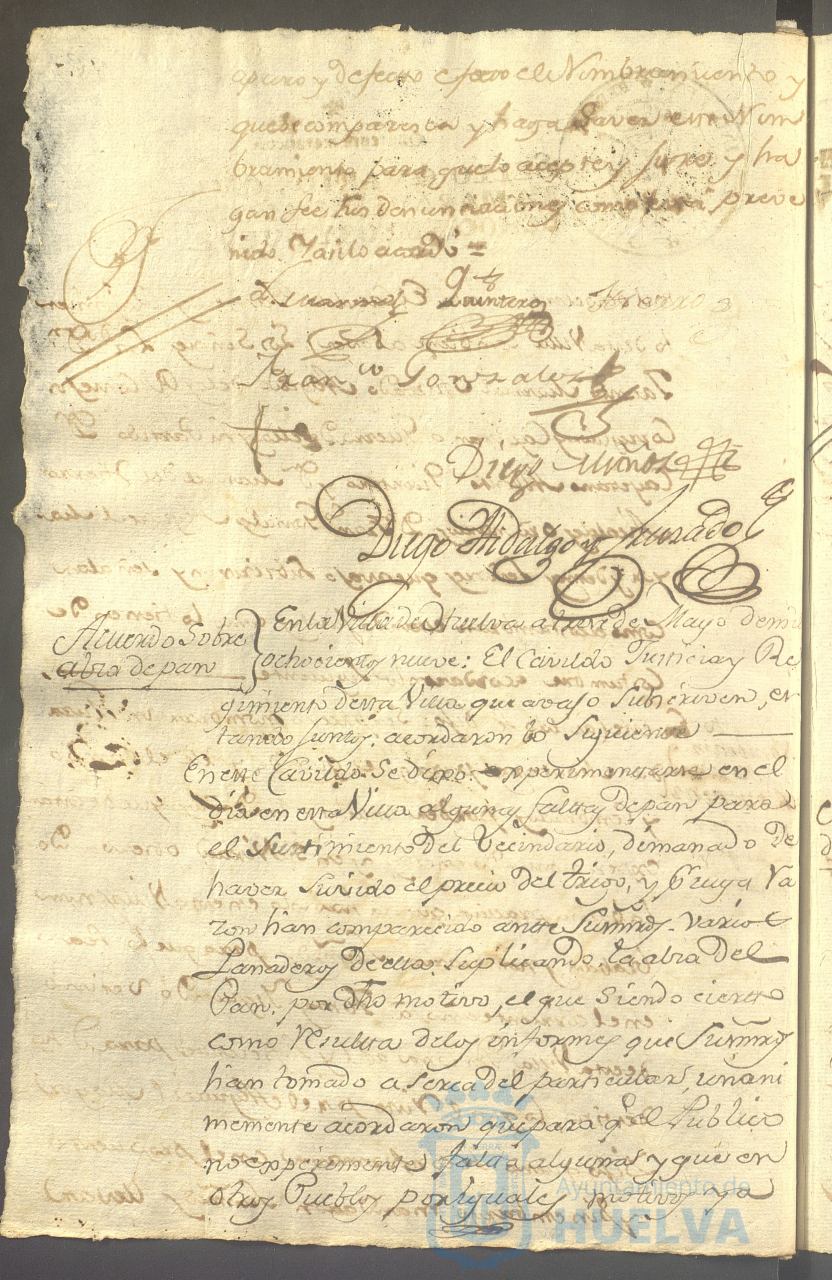 apuro y defecto efecto el Nombramiento y
que se comparesca y haga saver este Nom
bramiento para que lo acepte y jure, y ha
gan fee sus denunciaciones como será preve
nido. Y así lo acordó =
Quintero
Fran.co Gonzalez
Diego Muñoz
Diego Hidalgo y Jurado
Acuerdo Sobre
alza de pan
En la Villa de Huelva a tres de Mayo de mil
ochocientos nueve: El Cavildo Justicia y Re
gimiento desta Villa que avajo subscriven, es
tando juntos: acordaron lo siguiente
En este Cavildo Se dixo: experimentarse en el
dia en esta Villa algunas faltas de pan para
el Surtimiento del Vecindario, dimanado de
haver Suvido el precio del trigo, y Cuya Ra
zon han comparecido ante Sus mrds. varios
Panaderos de ella, Suplicando, la alza del
Pan, por dho motivo, el que siendo cierto
como resulta de los informes que Sus mrds
han tomado a serca del particular, unani
memente acordaron que para q.e el Publico
no experimente falta alguna, y que en
otros Pueblos por iguales motivos, ya
Ayuntamiento de
HUELVA